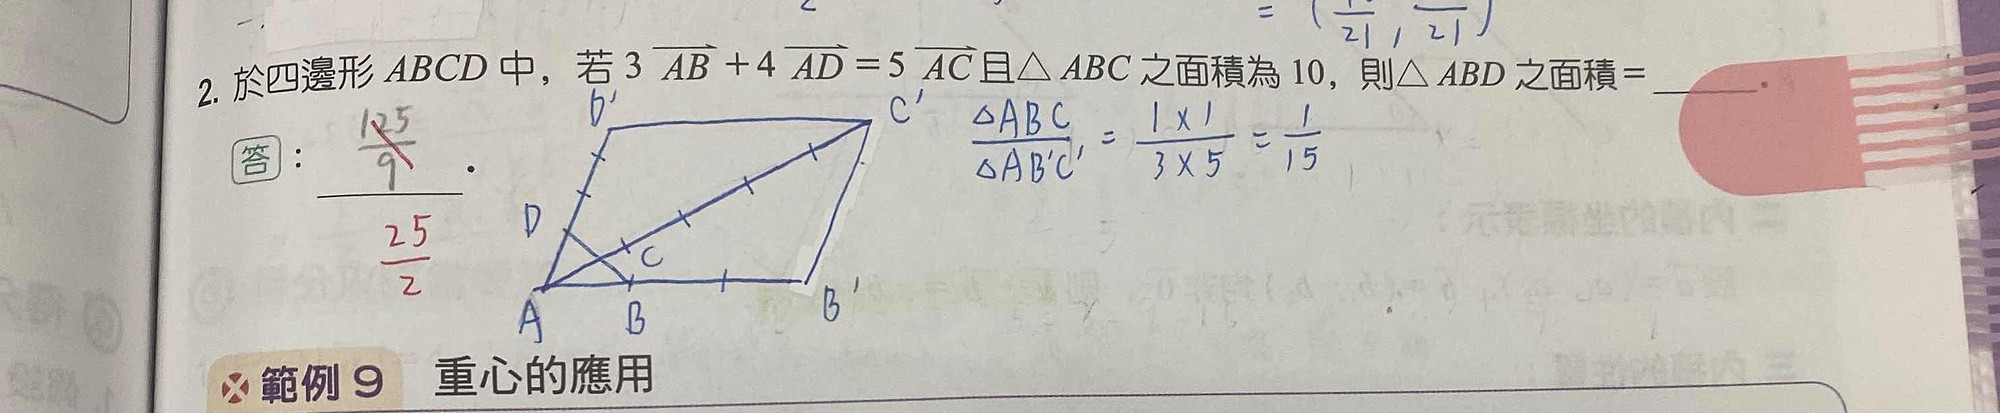 = ( /21 , /21 )
2. 於四邊形 ABCD 中，若 3 AB + 4 AD = 5 AC 且△ ABC 之面積為 10，則△ ABD 之面積 = ______ .
答 : 125/9 .
25/2
D' C' D C A B B'
△ABC/△AB'C' = 1×1/3×5 = 1/15
範例 9 重心的應用